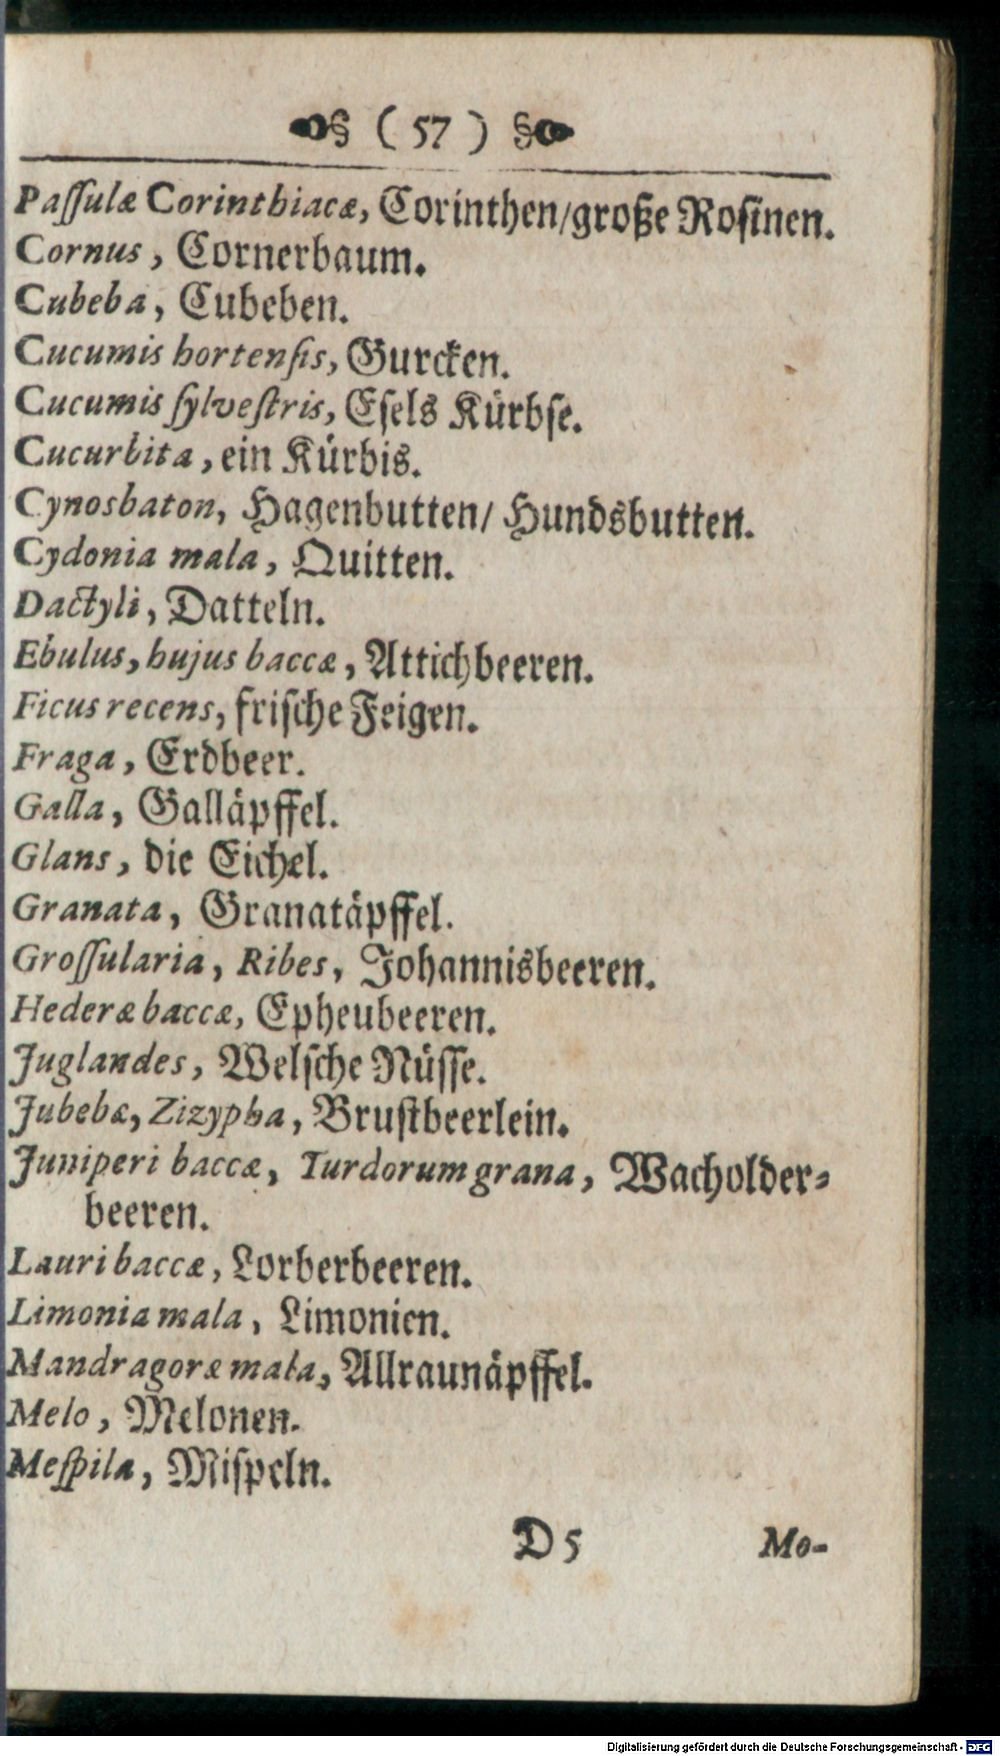 § ( 57 ) §
Paſſulæ Corinthiacæ, Corinthen/große Roſinen.
Cornus, Cornerbaum.
Cubeba, Cubeben.
Cucumis hortenſis, Gurcken.
Cucumis ſylveſtris, Eſels Kürbſe.
Cucurbita, ein Kürbis.
Cynosbaton, Hagenbutten/ Hundsbutten.
Cydonia mala, Quitten.
Dactyli, Datteln.
Ebulus, hujus baccæ, Attichbeeren.
Ficus recens, friſche Feigen.
Fraga, Erdbeer.
Galla, Galläpffel.
Glans, die Eichel.
Granata, Granatäpffel.
Groſſularia, Ribes, Johannisbeeren.
Hederæ baccæ, Epheubeeren.
Juglandes, Welſche Nüſſe.
Jubebæ, Zizypha, Bruſtbeerlein.
Juniperi baccæ, Turdorum grana, Wacholder-
beeren.
Lauri baccæ, Lorberbeeren.
Limonia mala, Limonien.
Mandragoræ mala, Allraunäpffel.
Melo, Melonen.
Meſpila, Miſpeln.
D 5 Mo-
Digitalisierung gefördert durch die Deutsche Forschungsgemeinschaft - DFG